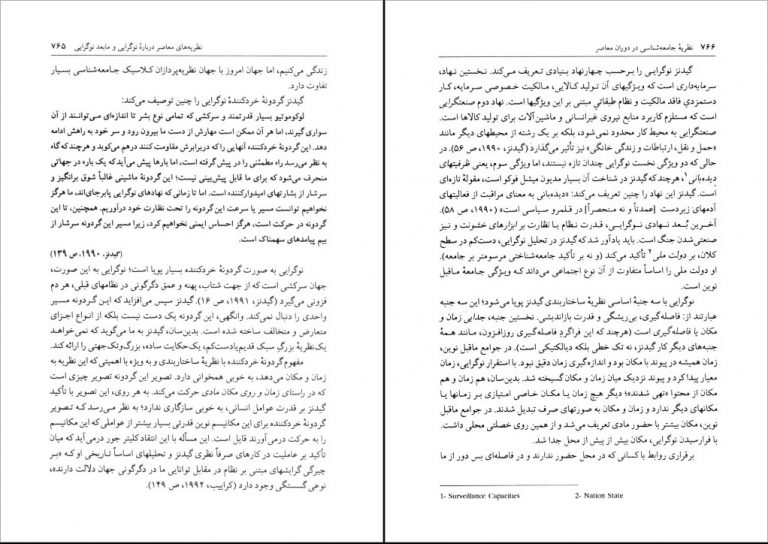 نظریه‌های معاصر دربارهٔ نوگرایی و مابعد نوگرایی ۷۶۵
زندگی می‌کنیم، اما جهان امروز با جهان نظریه‌پردازان کلاسیک جامعه‌شناسی بسیار
تفاوت دارد.
گیدنز گردونهٔ خردکنندهٔ نوگرایی را چنین توصیف می‌کند:
لوکوموتیو بسیار قدرتمند و سرکشی که تمامی نوع بشر تا اندازه‌ای می‌توانند از آن
سواری گیرند، اما هر آن ممکن است مهارش از دست ما بیرون رود و سر خود به راهش ادامه
دهد. این گردونهٔ خردکننده آنهایی را که دربرابرش مقاومت کنند درهم می‌کوبد و هرچندکه گاه
به نظر می‌رسد راه مطمئنی را در پیش گرفته است، اما بارها پیش می‌آید که یک باره در جهاتی
منحرف می‌شود که برای ما قابل پیش‌بینی نیست؛ این گردونهٔ ماشینی غالباً شوق برانگیز و
سرشار از بشارتهای امیدوارکننده است. اما تا زمانی که نهادهای نوگرایی پابرجای‌اند، ما هرگز
نخواهیم توانست مسیر یا سرعت این گردونه را تحت نظارت خود درآوریم. همچنین، تا این
گردونه در حرکت است، هرگز احساس ایمنی نخواهیم کرد، زیرا مسیر این گردونه سرشار از
بیم پیامدهای سهمناک است.
(گیدنز، ۱۹۹۰، ص ۱۳۹)
نوگرایی به صورت گردونهٔ خردکننده بسیار پویا است؛ نوگرایی به این صورت،
جهان سرکشی است که از جهت شتاب، پهنه و عمق دگرگونی در نظامهای قبلی، هر دم
فزونی می‌گیرد (گیدنز، ۱۹۹۱، ص ۱۶). گیدنز سپس می‌افزاید که این گردونه مسیر
واحدی را دنبال نمی‌کند. وانگهی، این گردونه یک دست نیست بلکه از انواع اجزای
متعارض و متخالف ساخته شده است. بدین‌سان، گیدنز به ما می‌گوید که نمی‌خواهد
یک نظریهٔ بزرگ سبک قدیم یادست‌کم، یک حکایت ساده، بزرگ و تک‌جهتی را ارائه کند.
مفهوم گردونهٔ خردکننده با نظریهٔ ساختاربندی و به ویژه با اهمیتی که این نظریه به
زمان و مکان می‌دهد، به خوبی همخوانی دارد. تصویر این گردونه تصویر چیزی است
که در راستای زمان و روی مکان مادی حرکت می‌کند. به هر روی، این تصویر با تأکید
گیدنز بر قدرت عوامل انسانی، به خوبی سازگاری ندارد؛ به نظر می‌رسد که تصویر
گردونهٔ خردکننده برای این مکانیسم نوین قدرتی بسیار بیشتر از عواملی که این مکانیسم
را به حرکت درمی‌آورند قایل است. این مسأله با این انتقاد کلیتر جور درمی‌آید که میان
تأکید بر عاملیت در کارهای صرفاً نظری گیدنز و تحلیلهای اساساً تاریخی او که «بر
چیرگی گرایشهای مبتنی بر نظام در مقابل توانایی ما در دگرگونی جهان دلالت دارند»،
نوعی گسستگی وجود دارد (کرایب، ۱۹۹۲، ص ۱۴۹).
۷۶۶ نظریهٔ جامعه‌شناسی در دوران معاصر
گیدنز نوگرایی را برحسب چهارنهاد بنیادی تعریف می‌کند. نخستین نهاد،
سرمایه‌داری است که ویژگیهای آن تولید کالایی، مالکیت خصوصی سرمایه، کار
دستمزدی فاقد مالکیت و نظام طبقاتی مبتنی بر این ویژگیها است. نهاد دوم صنعتگرایی
است که مستلزم کاربرد منابع نیروی غیرانسانی و ماشین‌آلات برای تولید کالاها است.
صنعتگرایی به محیط کار محدود نمی‌شود، بلکه بر یک رشته از محیطهای دیگر مانند
«حمل و نقل، ارتباطات و زندگی خانگی» نیز تأثیر می‌گذارد (گیدنز، ۱۹۹۰، ص ۵۶). در
حالی که دو ویژگی نخست نوگرایی چندان تازه نیستند، اما ویژگی سوم، یعنی ظرفیتهای
دیده‌بانی۱، هرچندکه گیدنز در شناخت آن بسیار مدیون میشل فوکو است، مقولهٔ تازه‌ای
است. گیدنز این نهاد را چنین تعریف می‌کند: «دیده‌بانی به معنای مراقبت از فعالیتهای
آدمهای زیردست [عمدتاً و نه منحصراً] در قلمرو سیاسی است» (۱۹۹۰، ص ۵۸).
آخرین بُعد نهادی نوگرایی، قدرت نظام یا نظارت بر ابزارهای خشونت و نیز
صنعتی‌شدن جنگ است. باید یادآور شد که گیدنز در تحلیل نوگرایی، دست‌کم در سطح
کلان، بر دولت ملی۲ تأکید می‌کند (و نه بر تأکید جامعه‌شناختی مرسومتر بر جامعه).
او دولت ملی را اساساً متفاوت از آن نوع اجتماعی می‌داند که ویژگی جامعهٔ ماقبل
نوین است.
نوگرایی با سه جنبهٔ اساسی نظریهٔ ساختاربندی گیدنز پویا می‌شود؛ این سه جنبه
عبارتند از: فاصله‌گیری، بی‌ریشگی و قدرت بازاندیشی. نخستین جنبه، جدایی زمان و
مکان یا فاصله‌گیری است (هرچند که این فراگرد فاصله‌گیری روزافزون، مانند همهٔ
جنبه‌های دیگر کار گیدنز، نه تک خطی بلکه دیالکتیکی است). در جوامع ماقبل نوین،
زمان همیشه در پیوند با مکان بود و اندازه‌گیری زمان دقیق نبود. با استقرار نوگرایی، زمان
معیار پیدا کرد و پیوند نزدیک میان زمان و مکان گسیخته شد. بدین‌سان، هم زمان و هم
مکان از محتوا «تهی شدند»؛ دیگر هیچ زمان یا مکان خاصی امتیازی بر زمانها یا
مکانهای دیگر ندارد و زمان و مکان به صورتهای صرف تبدیل شدند. در جوامع ماقبل
نوین، مکان بیشتر با حضور مادی تعریف می‌شد و از همین روی خصلتی محلی داشت.
با فرارسیدن نوگرایی، مکان بیش از پیش از محل جدا شد.
برقراری روابط با کسانی که در محل حضور ندارند و در فاصله‌ای بس دور از ما
1- Surveillance Capacities 2- Nation State